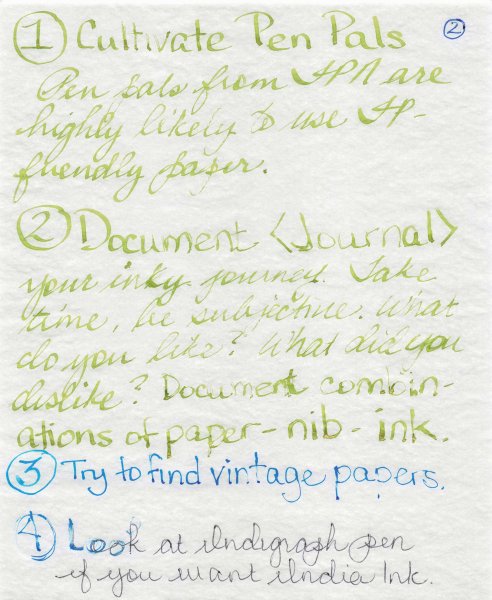 ① Cultivate Pen Pals
②
Pen pals from FPN are
highly likely to use FP-
friendly paper.
② Document <Journal>
your inky journey. Take
time, be subjective. What
do you like? What did you
dislike? Document combin-
ations of paper - nib - ink.
③ Try to find vintage papers.
④ Look at Indigraph pen
if you want India Ink.